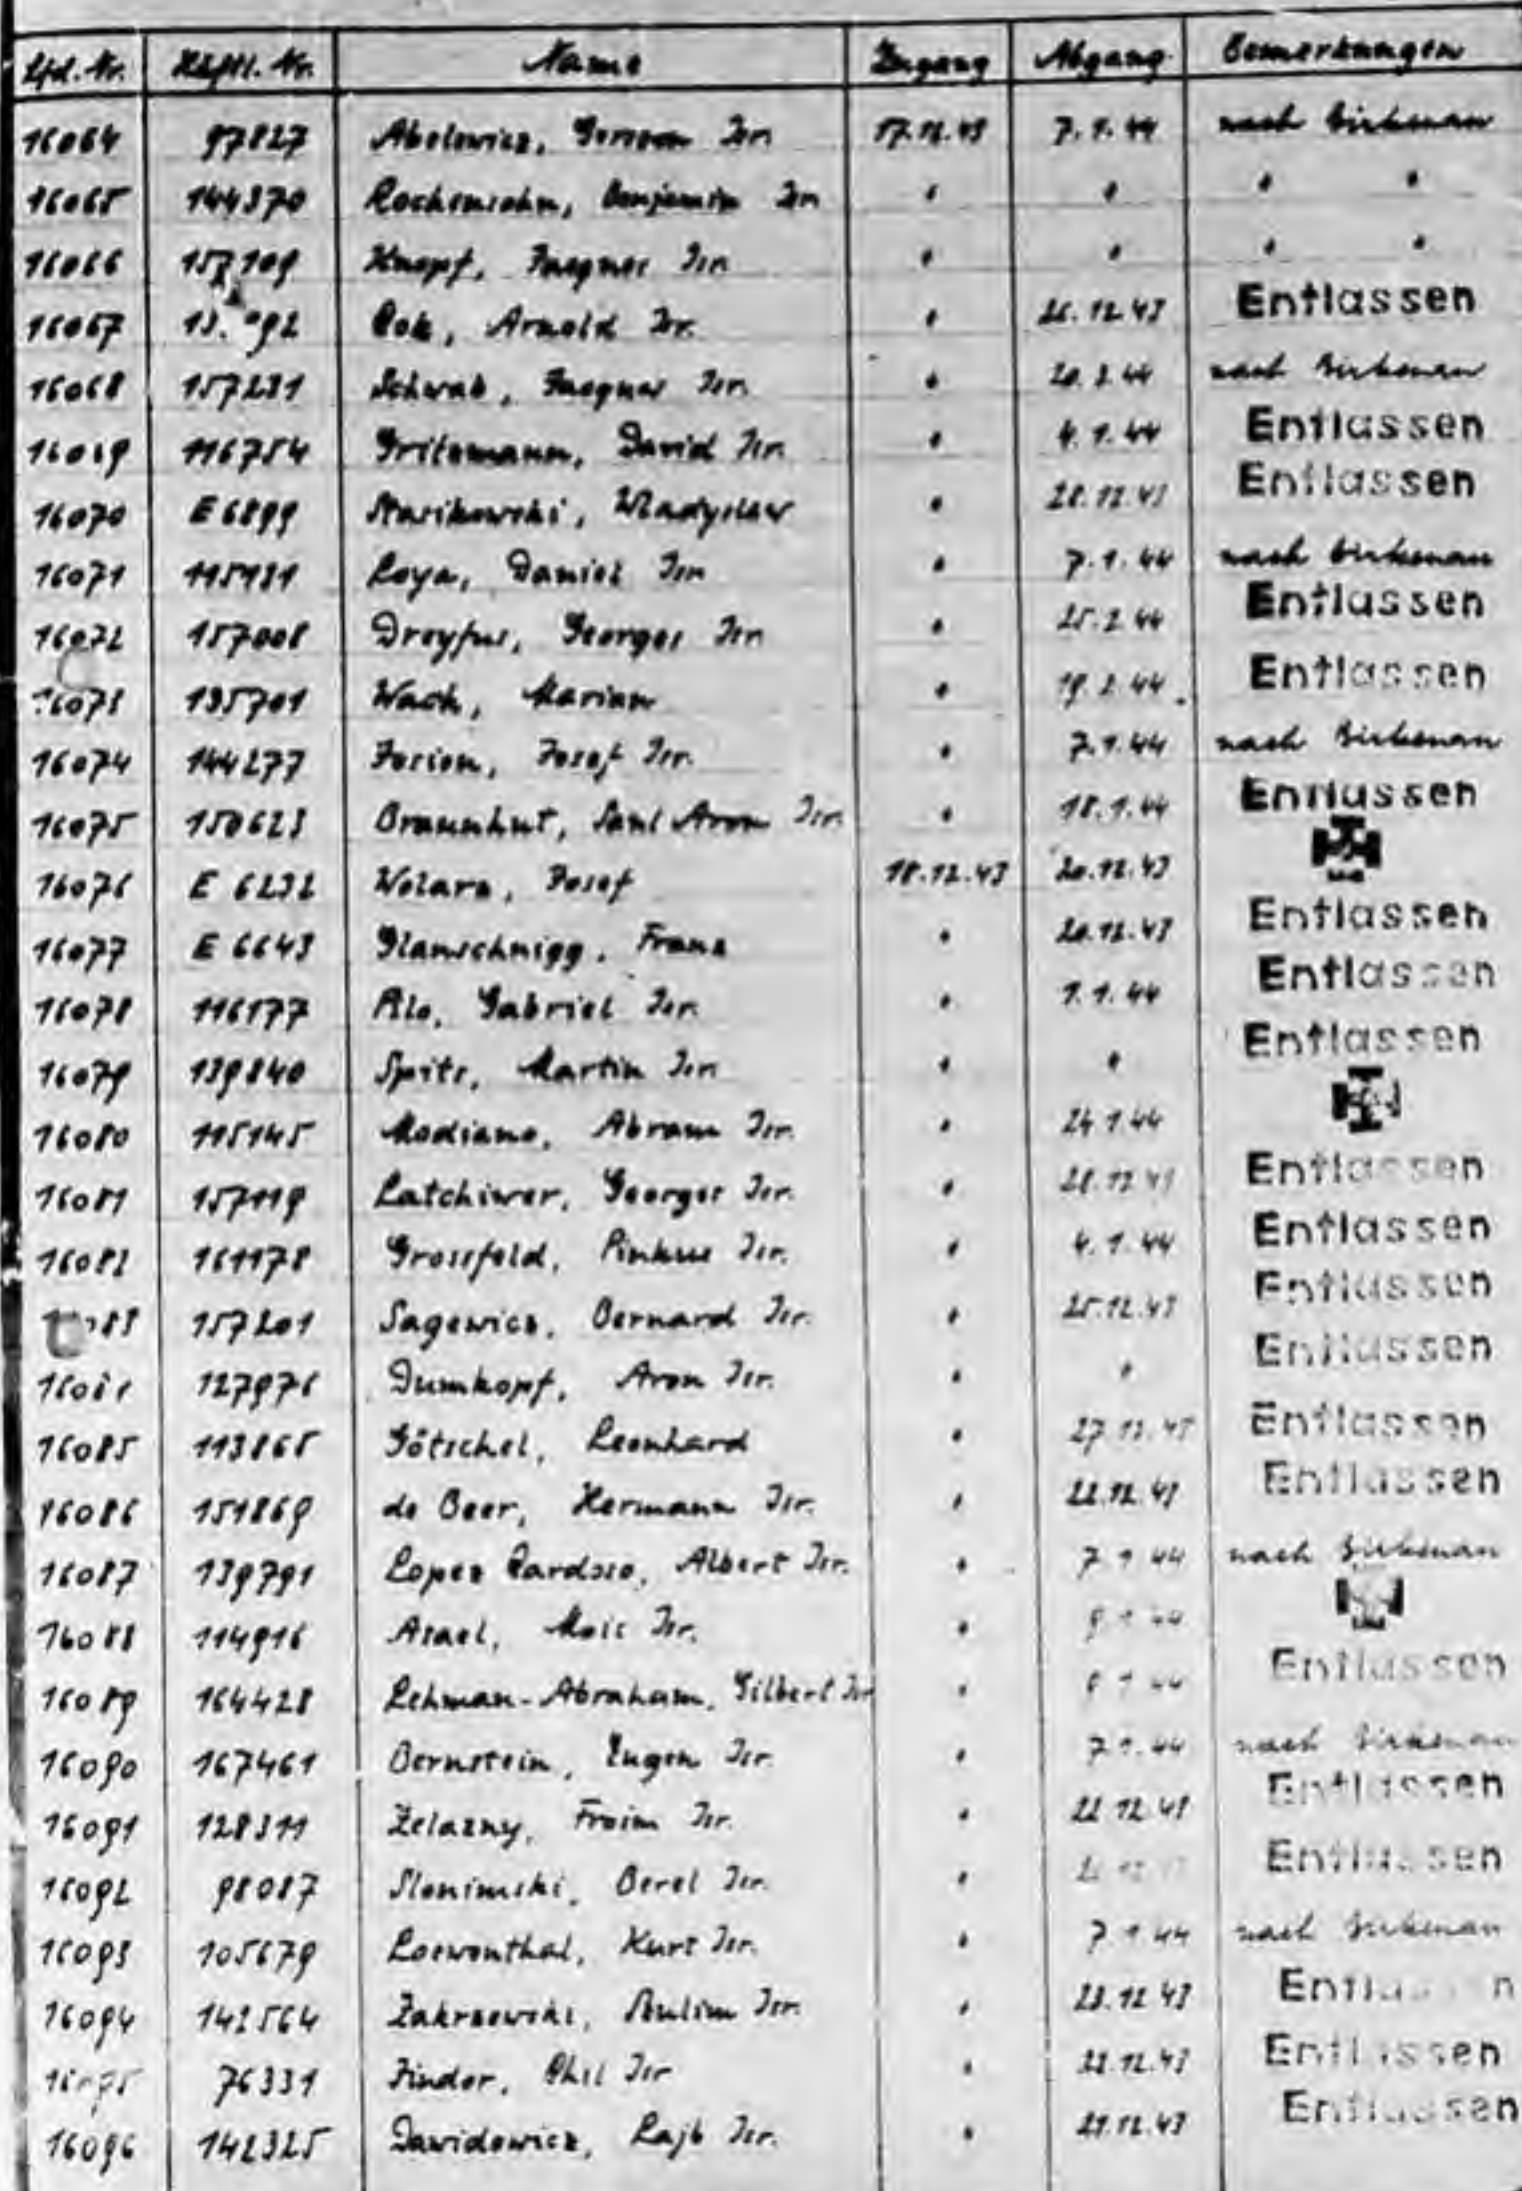 Lfd. Nr. Häftl. Nr. Name Zugang Abgang Bemerkungen
16064 97827 Abelowicz, Gerson Isr. 17.12.43 7.1.44 nach Birkenau
16065 144370 Rochensohn, Benjamin Isr. " " " "
16066 157109 Knopf, Jacques Isr. " " " "
16067 Arnold Isr. " 26.12.43 Entlassen
16068 157231 Schwab, Jacques Isr. " 20.2.44 nach Birkenau
16069 116754 Gritzmann, David Isr. " 4.1.44 Entlassen
16070 E 6899 Starikowski, Wladyslaw " 28.12.43 Entlassen
16071 115181 Leya, Daniel Isr. " 7.1.44 nach Birkenau
16072 157008 Dreyfus, Georges Isr. " 25.2.44 Entlassen
16073 135701 Wach, Marian " 19.2.44 Entlassen
16074 144277 Josef Isr. " 7.1.44 nach Birkenau
16075 150623 Braunhut, Saul Aron Isr. " 18.1.44 Entlassen
16076 E 6232 Wolarz, Josef 18.12.43 20.12.43
16077 E 6643 Glanschnigg, Franz " 20.12.43 Entlassen
16078 116177 Gabriel Isr. " 1.1.44 Entlassen
16079 139840 Spitz, Martin Isr. " " Entlassen
16080 115145 Modiano, Abram Isr. " 24.1.44
16081 157119 Latchiwer, Georges Isr. " 28.12.43 Entlassen
16082 161178 Grossfeld, Pinkus Isr. " 4.1.44 Entlassen
157201 Sagewicz, Bernard Isr. " 25.12.43 Entlassen
127976 Dumkopf, Aron Isr. " " Entlassen
16085 113865 Götschel, Leonhard " 27.12.43 Entlassen
16086 151869 de Beer, Hermann Isr. " 22.12.43 Entlassen
16087 139791 Lopez Cardozo, Albert Isr. " 7.1.44 nach Birkenau
16088 114916 Asael, Mois Isr. "
16089 164428 Lehman-Abraham, Gilbert Isr. " Entlassen
16090 167461 Bernstein, Eugen Isr. " 7.1.44 nach Birkenau
16091 128311 Zelazny, Froim Isr. " 22.12.43 Entlassen
16092 98087 Slonimski, Berel Isr. " Entlassen
16093 105679 Loewenthal, Kurt Isr. " 7.1.44 nach Birkenau
16094 142564 Zakrzewski, Szulim Isr. " 23.12.43 Entlassen
76331 Finder, Chil Isr. " 22.12.43 Entlassen
16096 142325 Dawidowicz, Lajb Isr. " 21.12.43 Entlassen